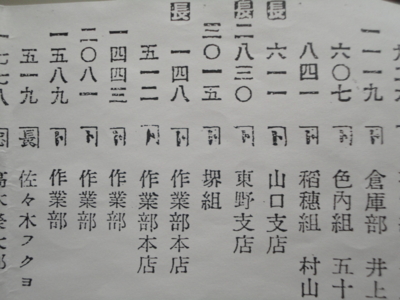 一一一九 ト 倉庫部 井上
六〇七 ト 色内組 五十
八四一 ト 稲穂組 村山
長 六一一 ト 山口支店
長 二八三〇 ト 東野支店
三〇一五 ト 堺組
長 一四八 ト 作業部本店
五一二 ト 作業部本店
一四四三 ト 作業部
二〇八一 ト 作業部
一五八九 ト 作業部
五一九 長 佐々木フクヨ
一七七八